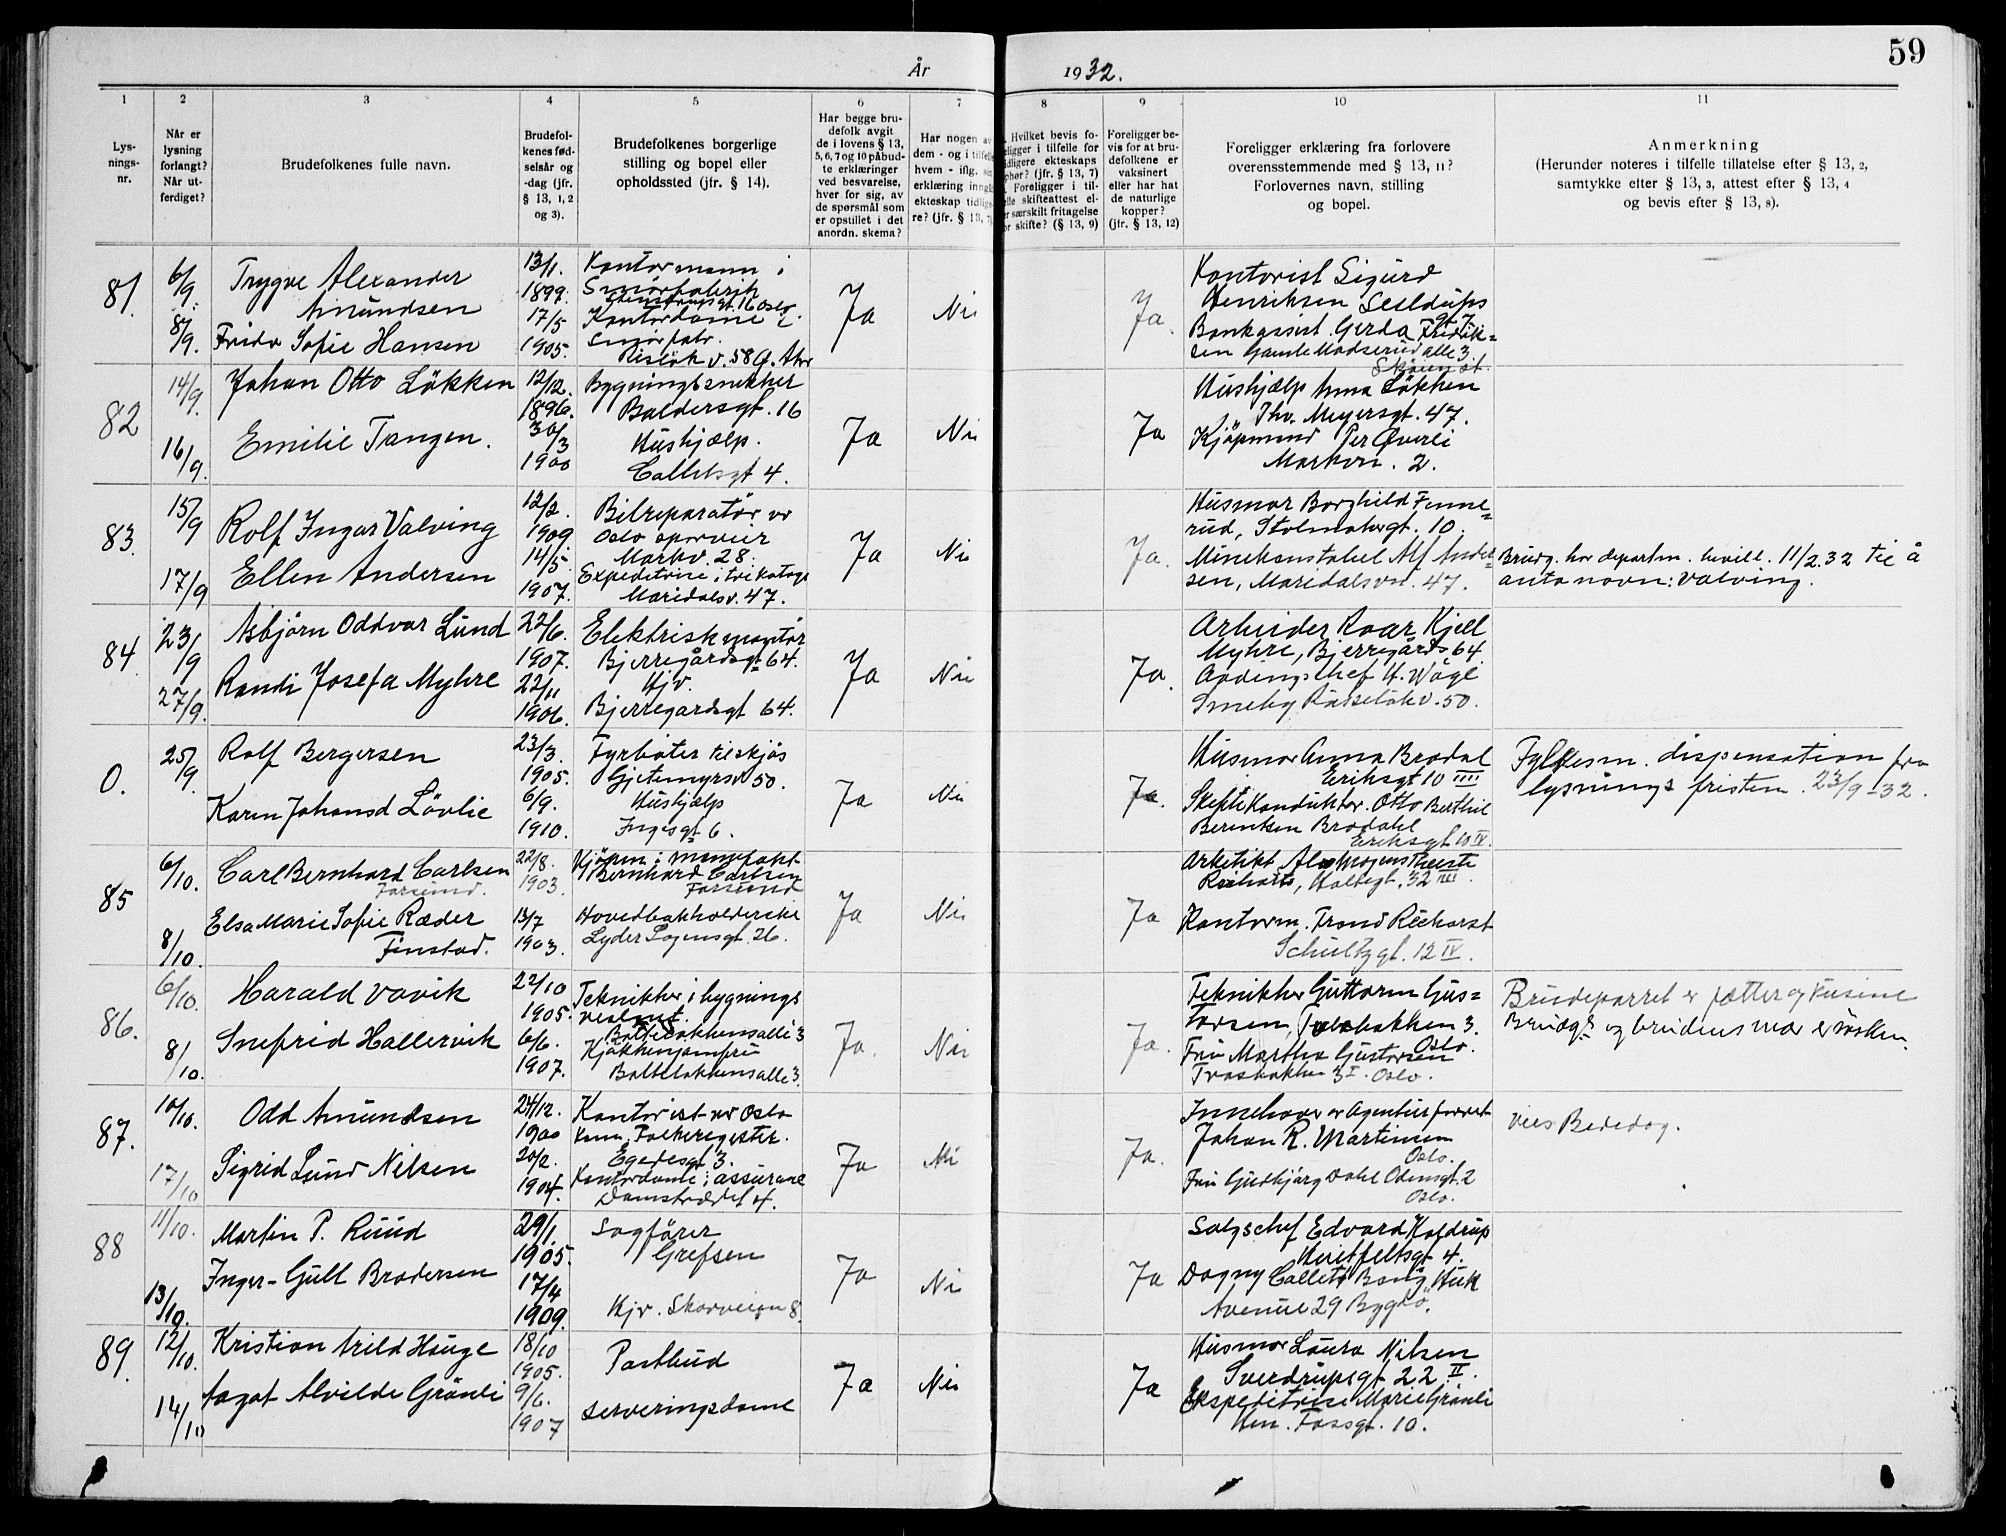 59
År
1932.
1
2
3
4
5
6
7
8
9
10
11
Lys-
nings-
nr.
Når er
lysning
forlangt?
Når ut-
ferdiget?
Brudefolkenes fulle navn.
Brudefol-
kenes fød-
selsår og
-dag (jfr.
§ 13, 1, 2
og 3).
Brudefolkenes borgerlige
stilling og bopel eller
opholdssted (jfr. § 14).
Har begge bru-
defolk avgit
de i lovens § 13,
5, 6, 7 og 10 påbud-
te erklæringer
ved besvarelse,
hver for sig, av
de spørsmål som
er opstillet i det
anordn. skema?
Har nogen av
dem - og i tilfelle
hvem - iflg. sin
erklæring inngå
ekteskap tidlige
re? (jfr. § 13, 7)
Hvilket bevis fo-
religger i tilfelle for
tidligere ekteskaps
ophør? (jfr. § 13, 7)
Foreligger i til-
elle skifteattest el-
er særskilt fritagelse
or skifte? (§ 13, 9)
Foreligger be-
vis for at bru-
defolkene er
vaksinert
eller har hat
de naturlige
kopper?
(jfr. § 13, 12)
Foreligger erklæring fra forlovere
overensstemmende med § 13, 11?
Forlovernes navn, stilling
og bopel.
Anmerkning
(Herunder noteres i tilfelle tillatelse efter § 13, 2,
samtykke efter § 13, 3, attest efter § 13, 4
og bevis efter § 13, 8).
81.
6/9.
8/9.
Trygve Alexander
Amundsen
Frida Sofie Hansen
13/1.
1899.
17/5
1905.
Kontormann i
Smörfabrik
16 Oslo.
Kontordame i
Smörfabr.
v. 58 Ø. Aker
Ja
Nei
Ja.
Kontorist Sigurd
Henriksen
Bankassist. Gerda Fredrik=
sen Gamle Madserud alle 3
82
14/9.
16/9.
Johan Otto Lökken
Emilie Tangen.
12/12.
1896.
30/3
1900
Bygningssnekker
Baldersgt. 16
Hushjælp.
Colletsgt 4.
Ja
Nei
Ja
Hushjælp Anna Lökken
Thv. Meyersgt. 47.
Kjöpmand Per Överli
Markvn. 2.
83.
15/9
17/9
Rolf Ingar Valving
Ellen Andersen
12/2.
1909
14/5
1907.
Bilreparatör vr
Oslo sporveier
Markv. 28.
Expeditrise i trikotage
Maridalsv. 47.
Ja
Nei
Ja.
Husmor Borghild Finne=
rud, gt. 10.
Alf Ander=
sen, Maridalsvn. 47.
Brudg. har departm. bevill. 11/2.32 til å
anta navn: Valving.
84.
23/9
27/9.
Asbjörn Oddvar Lund
Randi Josefa Myhre
22/6.
1907.
22/11
1906.
Elektrisk montör
Bjerregårdsgt 64.
Hjv.
Bjerregårdsgt 64.
Ja
Nei
Ja.
Arbeider Roar Kjell
Myhre, Bjerregårds 64
50.
0.
25/9.
Rolf Bergersen
Karen Johansd Lövlie
23/3.
1905.
6/9.
1910.
Fyrböter tilskjøs
Gjetemyrsv 50.
Hushjælp
Ingesgt 6.
Ja
Nei
Ja.
Husmor Anna Brodal
Eriksgt 10 IIII
Otto Berthil
Berentsen Brodahl
Eriksgt 10 IV.
Fylkesm. dispensation fra
lysnings fristen. 23/9-32.
85
6/10.
8/10.
Carl Bernhard Carlsen
Farsund.
Elsa Marie Sofie Ræder
Finstad.
22/8.
1903.
13/7
1903.
Kjöpm. i manufakt
Bernhard Carlsen
Farsund
Hovedbokholderske
Lyder Sagensgt. 26.
Ja
Nei
Ja
Arkitekt
Holtegt. 32 III.
Kontorm. Trond Riekarst
Schultzgt. 12 IV.
86.
6/10.
8/10.
Harald Vavik
Snefrid Hallervik
22/10
1905.
6/6.
1907.
Teknikker i bygnings
Boltelökkensalle 3
Kjökkenjomfru
Boltelökkensalle 3.
Ja.
Nei
Ja.
Tekniker Guttorm Gus=
tavsen, 3.
Oslo.
Fru Martha Gustavsen
3 I. Oslo.
Brudeparret er fætter og kusine
Brudgs og brudens mor er søsken.
87.
10/10.
17/10
Odd Amundsen
Sigrid Lund Nilsen
24/12.
1900
20/2.
1904.
Kontorist vr Oslo
Kom. Folkeregister.
Egedesgt 3.
Kontordame i assurane
Damstrædet 4.
Ja
Nei
Ja.
Innehaver av Agenturforret
Johan R. Martinsen
Oslo.
Fru Gudbjörg Dahl Odinsgt. 2
Oslo.
Vies Bededag.
88
11/10.
13/10.
Martin P. Ruud
Inger-Gull Brodersen
29/1.
1905.
17/4
1909.
Sagförer
Grefsen
Hjv. Skovveien 8.
Ja
Nei
Ja
Salgschef Edvard Koldrup
Huitfeltsgt 4.
Dagny Collett Bang Huk
Avenue 29 Bygdö.
89.
12/10.
14/10
Kristian Arild Hauge
Aagot Alvilde Grönli
18/10
1905.
9/6.
1907
Postbud
Serveringsdame
Ja
Nei
Ja
Husmor Laura Nilsen
Sverdrupsgt 22 II.
Ekspeditrise Marie Grönli
Hen. Fossgt. 10.